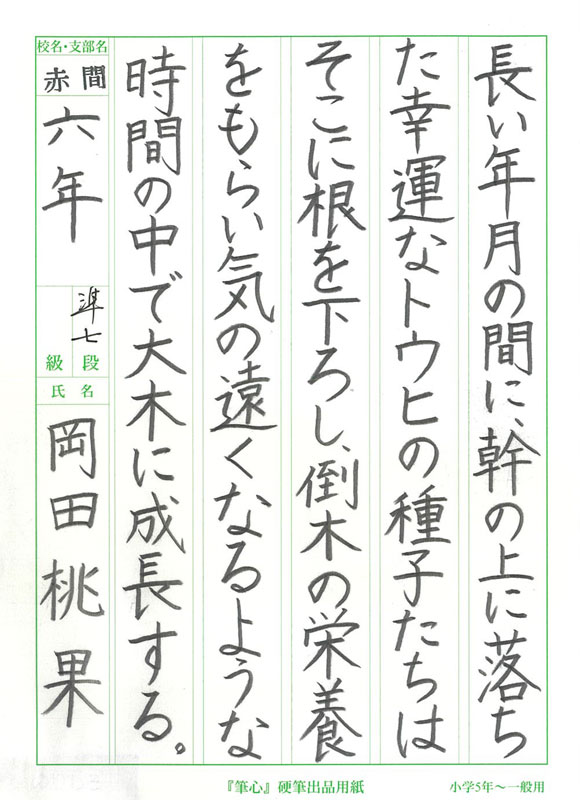 長い年月の間に、幹の上に落ち
た幸運なトウヒの種子たちは
そこに根を下ろし、倒木の栄養
をもらい気の遠くなるような
時間の中で大木に成長する。
校名・支部名
赤間
六年
準七
級段
氏名
岡田桃果
『筆心』硬筆出品用紙
小学5年～一般用